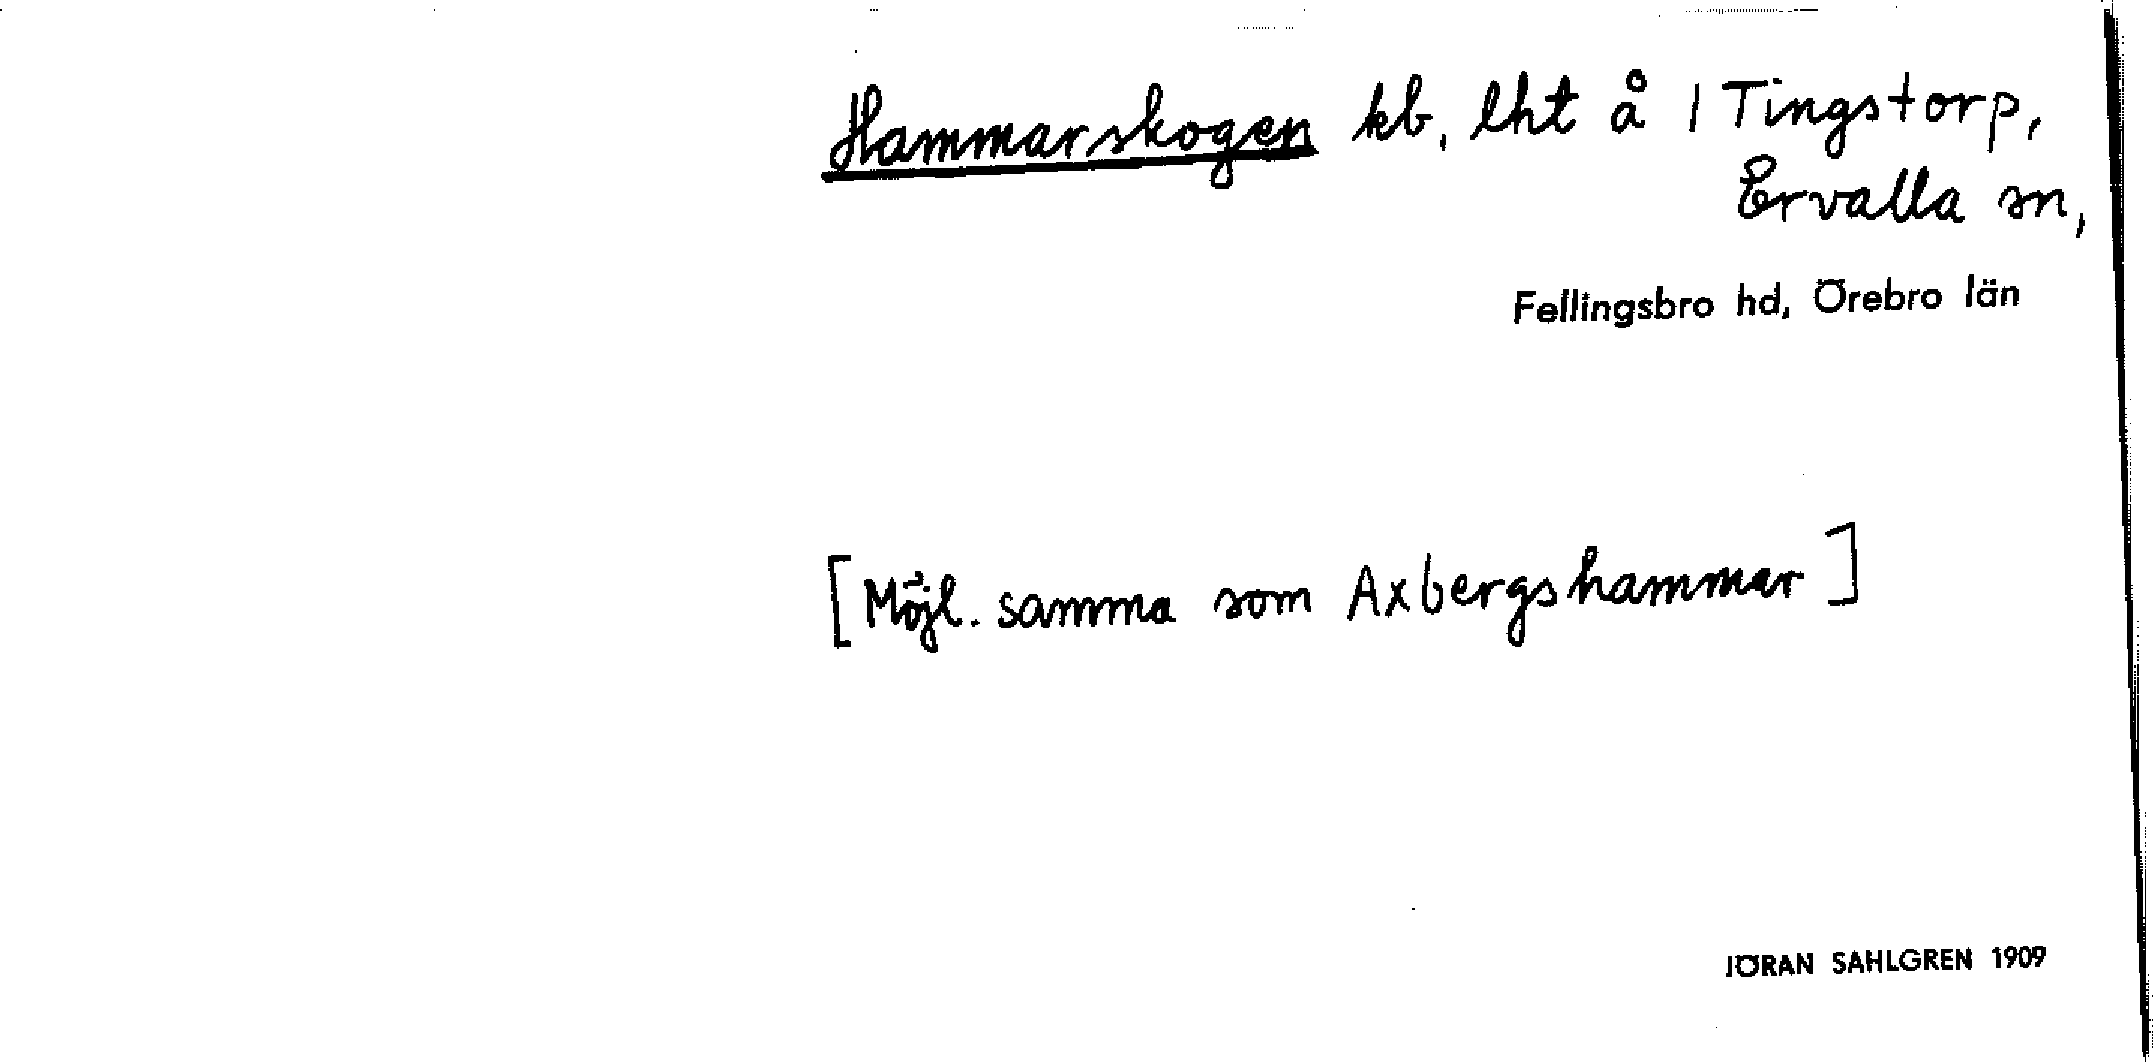 Hammarskogen kb, lht å 1 Tingstorp,
Ervalla sn,
Fellingsbro hd, Örebro län
[Möjl. samma som Axbergshammar]
JÖRAN SAHLGREN 1909